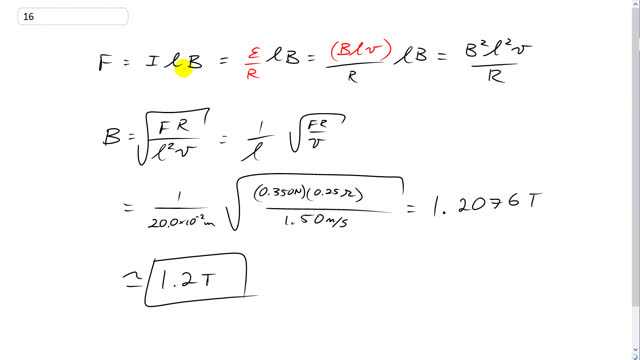 16
F = I l B = ε/R l B = (B l v)/R l B = B² l² v / R
B = √(F R / l² v) = 1/l √(FR / v)
= 1/(20.0×10⁻² m) √((0.350N)(0.25Ω) / 1.50 m/s) = 1.2076 T
≃ 1.2 T